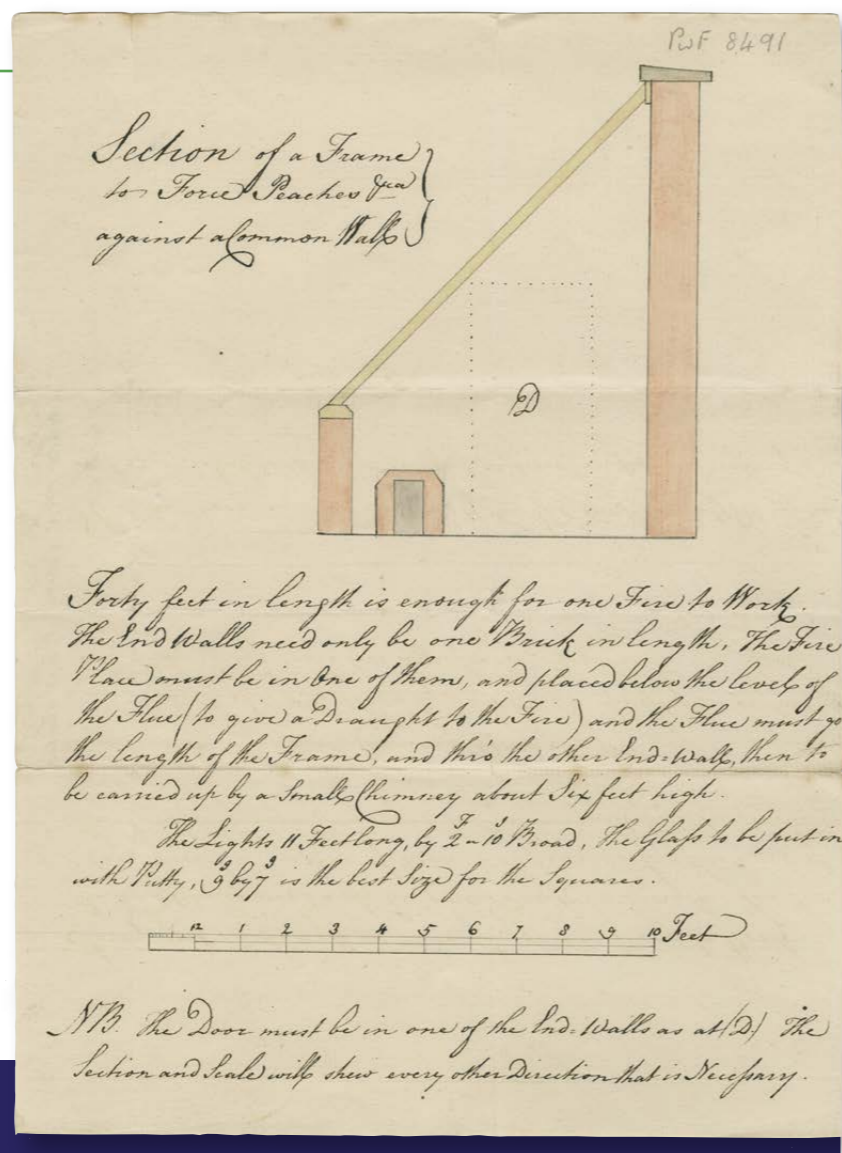 PwF 8491
Section of a Frame
to Force Peaches &ca
against a Common Wall
D
Forty feet in length is enough for one Fire to Work.
The End Walls need only be one Brick in length, The Fire
Place must be in One of them, and placed below the level of
the Flue (to give a Draught to the Fire) and the Flue must go
the length of the Frame, and thro' the other End=Wall, then to
be carried up by a Small Chimney about Six feet high.
The Lights 11 Feet long, by 2F-10I Broad, The Glass to be put in
with Putty, 9I by 7I is the best Size for the Squares.
12 1 2 3 4 5 6 7 8 9 10 Feet
NB. The Door must be in one of the End=Walls as at (D) The
Section and Scale will shew every other Direction that is Necessary.